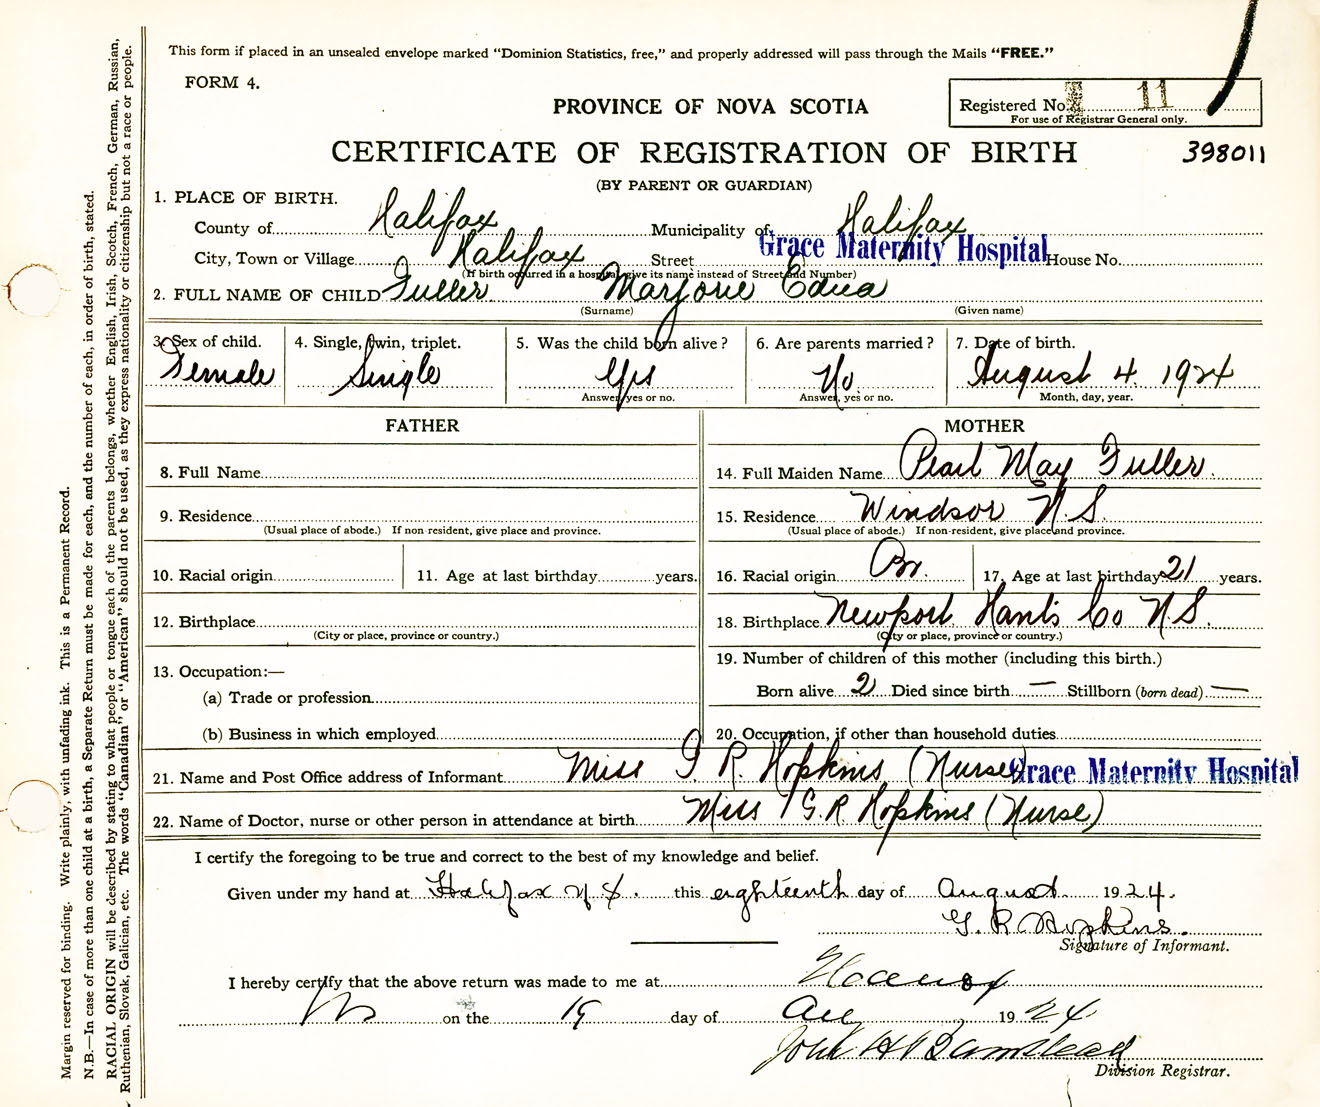 This form if placed in an unsealed envelope marked "Dominion Statistics, free," and properly addressed will pass through the Mails "FREE."
FORM 4.
PROVINCE OF NOVA SCOTIA
Registered No. 11
For use of Registrar General only.
CERTIFICATE OF REGISTRATION OF BIRTH
398011
(BY PARENT OR GUARDIAN)
1. PLACE OF BIRTH.
County of Halifax Municipality of Halifax
City, Town or Village Halifax Street Grace Maternity Hospital House No.
(If birth occurred in a hospital give its name instead of Street and Number)
2. FULL NAME OF CHILD Fuller Marjorie Edna
(Surname) (Given name)
3. Sex of child. 4. Single, twin, triplet. 5. Was the child born alive? 6. Are parents married? 7. Date of birth.
Female Single Yes No. August 4. 1924
Answer, yes or no. Answer, yes or no. Month, day, year.
FATHER MOTHER
8. Full Name 14. Full Maiden Name Pearl May Fuller.
9. Residence 15. Residence Windsor N.S.
(Usual place of abode.) If non-resident, give place and province. (Usual place of abode.) If non-resident, give place and province.
10. Racial origin 11. Age at last birthday years. 16. Racial origin Br. 17. Age at last birthday 21 years.
12. Birthplace 18. Birthplace Newport Hants Co N.S.
(City or place, province or country.) (City or place, province or country.)
13. Occupation:— 19. Number of children of this mother (including this birth.)
(a) Trade or profession Born alive 2 Died since birth — Stillborn (born dead) —
(b) Business in which employed 20. Occupation, if other than household duties
21. Name and Post Office address of Informant Miss G R. Hopkins (Nurse) Grace Maternity Hospital
22. Name of Doctor, nurse or other person in attendance at birth Miss G.R. Hopkins (Nurse)
I certify the foregoing to be true and correct to the best of my knowledge and belief.
Given under my hand at Halifax N.S. this eighteenth day of August 1924.
G. R Hopkins.
Signature of Informant.
I hereby certify that the above return was made to me at Halifax
NS on the 19 day of Aug 1924
John H Barnstead
Division Registrar.
Margin reserved for binding. Write plainly, with unfading ink. This is a Permanent Record.
N.B.—In case of more than one child at a birth, a Separate Return must be made for each, and the number of each, in order of birth, stated.
RACIAL ORIGIN will be described by stating to what people or tongue each of the parents belongs, whether English, Irish, Scotch, French, German, Russian,
Ruthenian, Slovak, Galician, etc. The words "Canadian" or "American" should not be used, as they express nationality or citizenship but not a race or people.